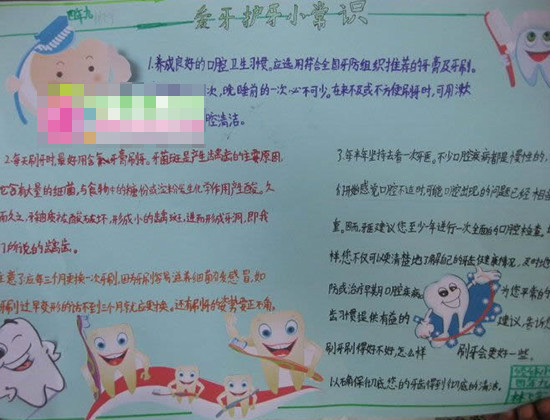 爱牙护牙小常识
1.养成良好的口腔卫生习惯。应选用符合全国牙防组织推荐的牙膏及牙刷。
次,晚睡前的一次必不可少。在来不及或不方便刷牙时,可用漱
腔清洁。
2.每天刷牙时,最好用含氟牙膏刷牙。牙菌斑是产生龋齿的主要原因,
它含有大量的细菌,与食物中的糖份或淀粉发生化学作用产生酸。久
而久之,牙釉质被酸破坏,形成小的龋斑,进而形成牙洞,即我
们所说的龋齿。
注意了应每三个月更换一次牙刷,因牙刷容易滋养细菌及感冒,如
刷过早变形的话不到三个月就应更换。还有刷牙的姿势要正确。
3.每半年坚持去看一次牙医。不少口腔疾病都是慢性的,
们开始感觉口腔不适时,可能口腔出现的问题已经相当
重。因而,牙医建议您至少半年进行一次全面的口腔检查。
样,您不仅可以清楚地了解自己的牙齿健康情况,及时
防或治疗早期口腔疾病
为您平常的
出习惯提供有益的
建议,告诉您
刷牙刷得好不好,怎么样
刷牙会更好一些,
以确保彻底您的牙齿得到彻底的清洁。